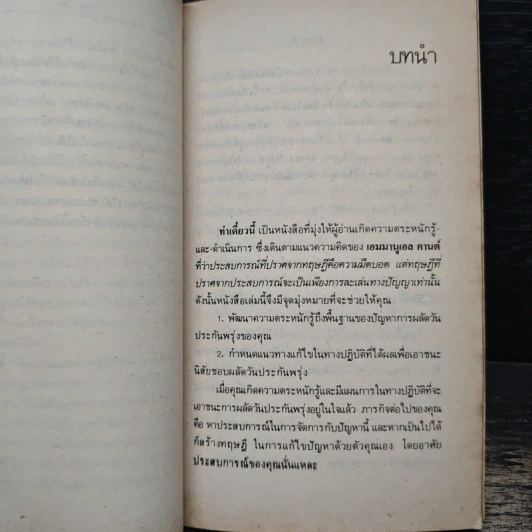 บทนำ
ทำเดี๋ยวนี้ เป็นหนังสือที่มุ่งให้ผู้อ่านเกิดความตระหนักรู้-
และ-ดำเนินการ ซึ่งเดินตามแนวความคิดของ เอมมานูเอล คานต์
ที่ว่าประสบการณ์ที่ปราศจากทฤษฎีคือความมืดบอด แต่ทฤษฎีที่
ปราศจากประสบการณ์จะเป็นเพียงการละเล่นทางปัญญาเท่านั้น
ดังนั้นหนังสือเล่มนี้จึงมีจุดมุ่งหมายที่จะช่วยให้คุณ
1. พัฒนาความตระหนักรู้ถึงพื้นฐานของปัญหาการผลัดวัน
ประกันพรุ่งของคุณ
2. กำหนดแนวทางแก้ไขในทางปฏิบัติที่ได้ผลเพื่อเอาชนะ
นิสัยชอบผลัดวันประกันพรุ่ง
เมื่อคุณเกิดความตระหนักรู้และมีแผนการในทางปฏิบัติที่จะ
เอาชนะการผลัดวันประกันพรุ่งอยู่ในใจแล้ว ภารกิจต่อไปของคุณ
คือ หาประสบการณ์ในการจัดการกับปัญหานี้ และหากเป็นไปได้
ก็สร้างทฤษฎี ในการแก้ไขปัญหาด้วยตัวคุณเอง โดยอาศัย
ประสบการณ์ของคุณนั่นแหละ